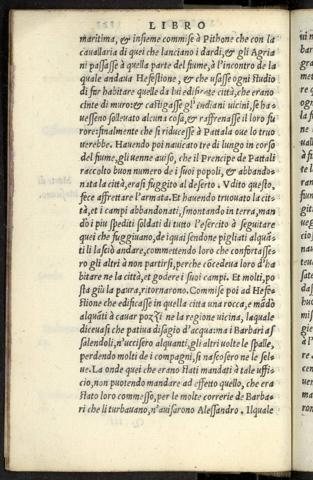 LIBRO
maritima, & insieme commise à Pithone che con la
cauallaria di quei che lanciano i dardi, & gli Agria
ni passasse à quella parte del fiume, à l'incontro de la
quale andaua Hefestione, & che usasse ogni studio
di far habitare quelle da lui edificate città, che erano
cinte di muro: & castigasse gl'indiani uicini, se ha-
uesseno solleuato alcuna cosa, & raffrenasse il loro fu
rore: finalmente che si riducesse à Pattala oue lo truo
uerebbe. Hauendo poi nauicato tre dì lungo in corso
del fiume, gli uenne auiso, che il Prencipe de Pattali
raccolto buon numero de i suoi popoli, & abbando
nata la città, era si fuggito al deserto. Vdito questo,
fece affrettare l'armata. Et hauendo truouato la cit-
tà, et i campi abbandonati, smontando in terra, man
dò i piu spediti soldati di tutto l'esercito à seguitare
quei che fuggiuano, de iquai sendone pigliati alquã-
ti li lasciò andare, commettendo loro che confortasse
ro gli altri à non partirsi, perche cõcedeua loro d'ha
bitare ne la città, et godere i suoi campi. Et molti, po
sta giù la paura, ritornarono. Commise poi ad Hefe
stione che edificasse in quella città una rocca, e mãdò
alquãti à cauar pozzi ne la regione uicina, laquale
diceuasi che patiua disagio d'acqua: ma i Barbari as
salendoli, n'uccisero alquanti, gli altri uolte le spalle,
perdendo molti de i compagni, si nascosero ne le sel-
ue. La onde quei che erano stati mandati à tale uffi-
cio, non puotendo mandare ad effetto quello, che era
stato loro commesso, per le molte correrie de Barba-
ri che li turbauano, n'auisarono Alessandro. Ilquale